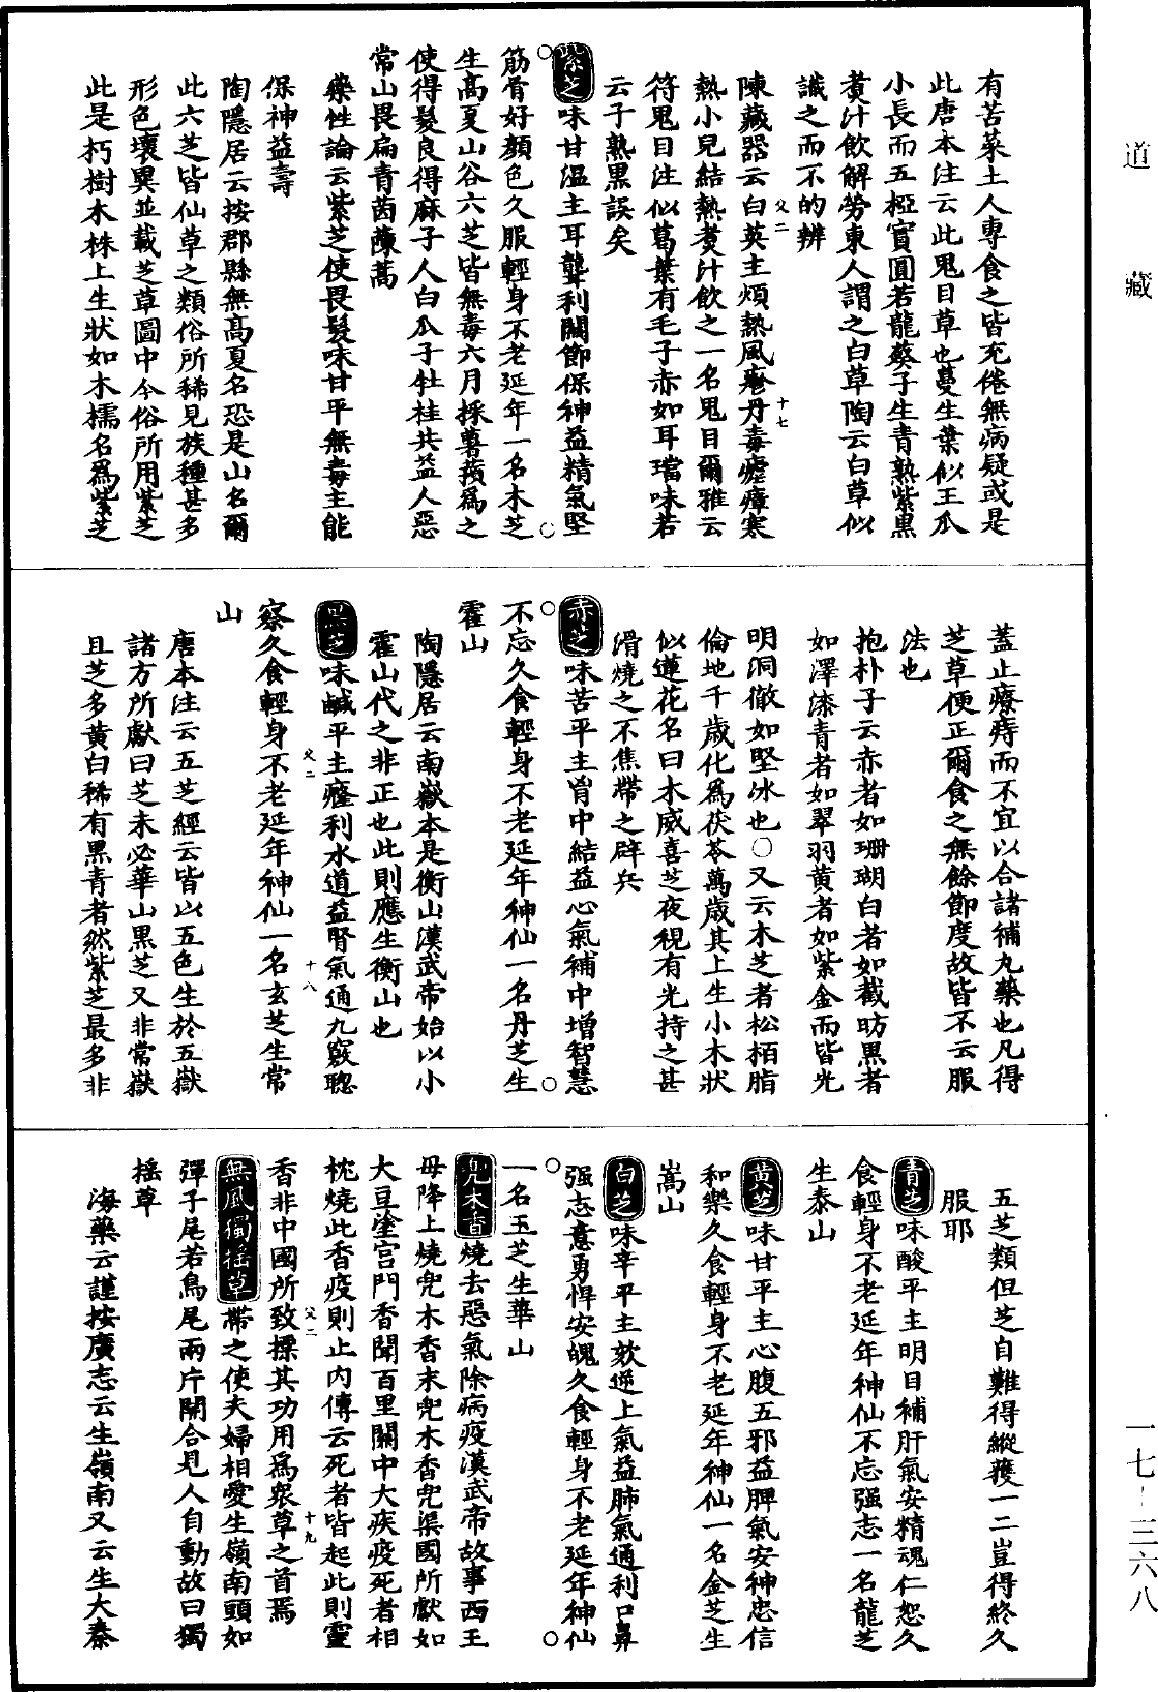 道藏
有苦菜土人專食之皆充倦無病疑或是
此唐本注云此鬼目草也蔓生葉似王瓜
小長而五椏實圓若龍葵子生青熟紫黑
煑汁飲解勞東人謂之白草陶云白草似
識之而不的辨
陳藏器云白英主煩熱風瘮丹毒瘧瘴寒
父二
十七
熱小兒結熱煑汁飲之一名鬼目爾雅云
符鬼目注似葛葉有毛子赤如耳璫味若
云子熟黒誤矣
紫芝味甘溫主耳聾利關節保神益精氣堅
筋骨好顏色久服輕身不老延年一名木芝
生高夏山谷六芝皆無毒六月採薯蕷爲之
使得髮良得麻子人白瓜子牡桂共益人惡
常山畏扁青茵蔯蒿
藥性論云紫芝使畏髮味甘平無毒主能
保神益壽
陶隱居云按郡縣無高夏名恐是山名爾
此六芝皆仙草之類俗所稀見族種甚多
形色壞異並載芝草圖中今俗所用紫芝
此是朽樹木株上生狀如木檽名爲紫芝
蓋止療痔而不宜以合諸補丸藥也凡得
芝草便正爾食之無餘節度故皆不云服
法也
抱朴子云赤者如珊瑚白者如截肪黒者
如澤漆青者如翠羽黄者如紫金而皆光
明洞徹如堅冰也○又云木芝者松栢脂
倫地千歳化爲茯苓萬歳其上生小木狀
似蓮花名曰木威喜芝夜視有光持之甚
滑燒之不焦帶之辟兵
赤芝味苦平主胷中結益心氣補中增智慧
不忘久食輕身不老延年神仙一名丹芝生
霍山
陶隱居云南嶽本是衡山漢武帝始以小
霍山代之非正也此則應生衡山也
黒芝味鹹平主癃利水道益腎氣通九竅聦
父二
十八
察久食輕身不老延年神仙一名玄芝生常
山
唐本注云五芝經云皆以五色生於五嶽
諸方所獻曰芝未必華山黒芝又非常嶽
且芝多黄白稀有黒青者然紫芝最多非
五芝類但芝自難得縱獲一二豈得終久
服耶
青芝味酸平主明目補肝氣安精魂仁恕久
食輕身不老延年神仙不忘强志一名龍芝
生泰山
黄芝味甘平主心腹五邪益脾氣安神忠信
和樂久食輕身不老延年神仙一名金芝生
嵩山
白芝味辛平主欬逆上氣益肺氣通利口鼻
强志意勇悍安魄久食輕身不老延年神仙
一名玉芝生華山
兜木香燒去惡氣除病疫漢武帝故事西王
母降上燒兜木香末兜木香兜渠國所獻如
大豆塗宫門香聞百里關中大疾疫死者相
枕燒此香疫則止内傳云死者皆起此則靈
香非中國所致摽其功用爲衆草之首焉
父二
十九
無風獨摇草帶之使夫婦相愛生嶺南頭如
彈子尾若鳥尾兩片開合見人自動故曰獨
摇草
海藥云謹按廣志云生嶺南又云生大秦
一七-三六八